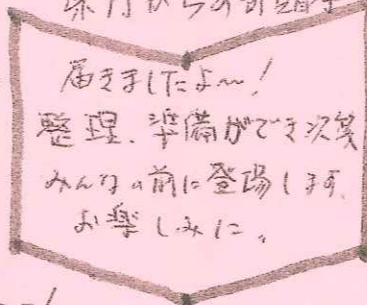 届きましたよ〜!
整理、準備ができ次第
みんなの前に登場します。
お楽しみに。